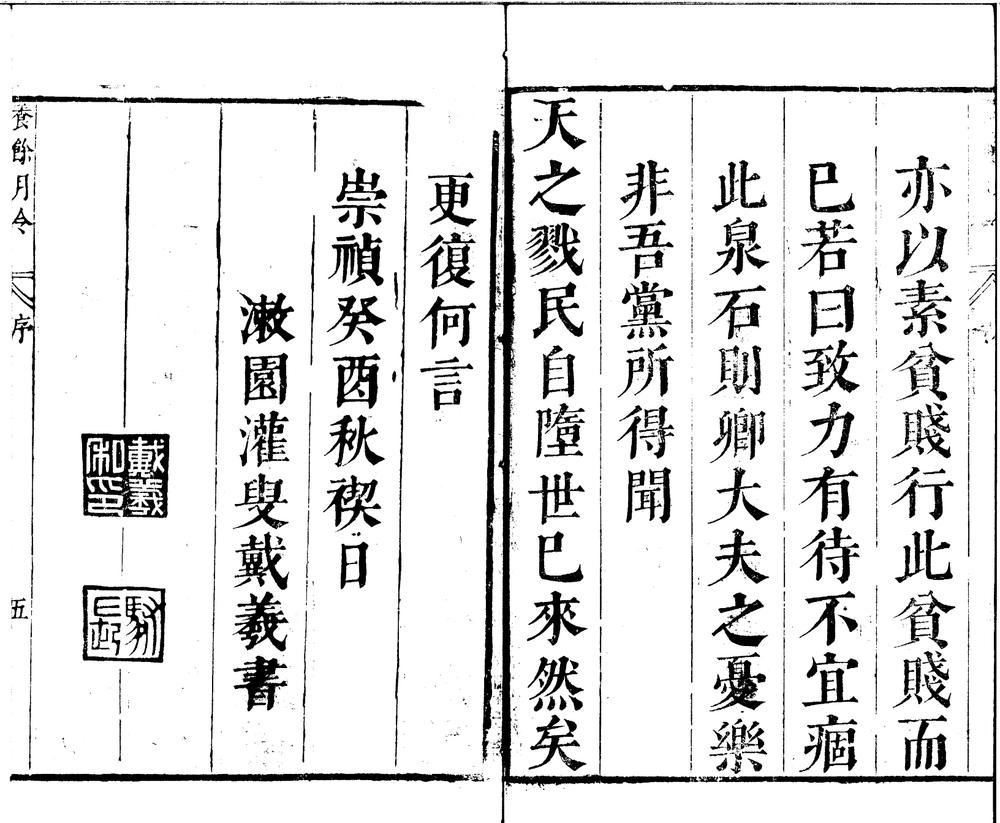 亦以素貧賤行此貧賤而
已若曰致力有待不宜痼
此泉石則卿大夫之憂樂
非吾黨所得聞
天之戮民自墮世已來然矣
更復何言
崇禎癸酉秋禊日
漱園灌叟戴羲書
戴羲
私印
養餘月令
序
五